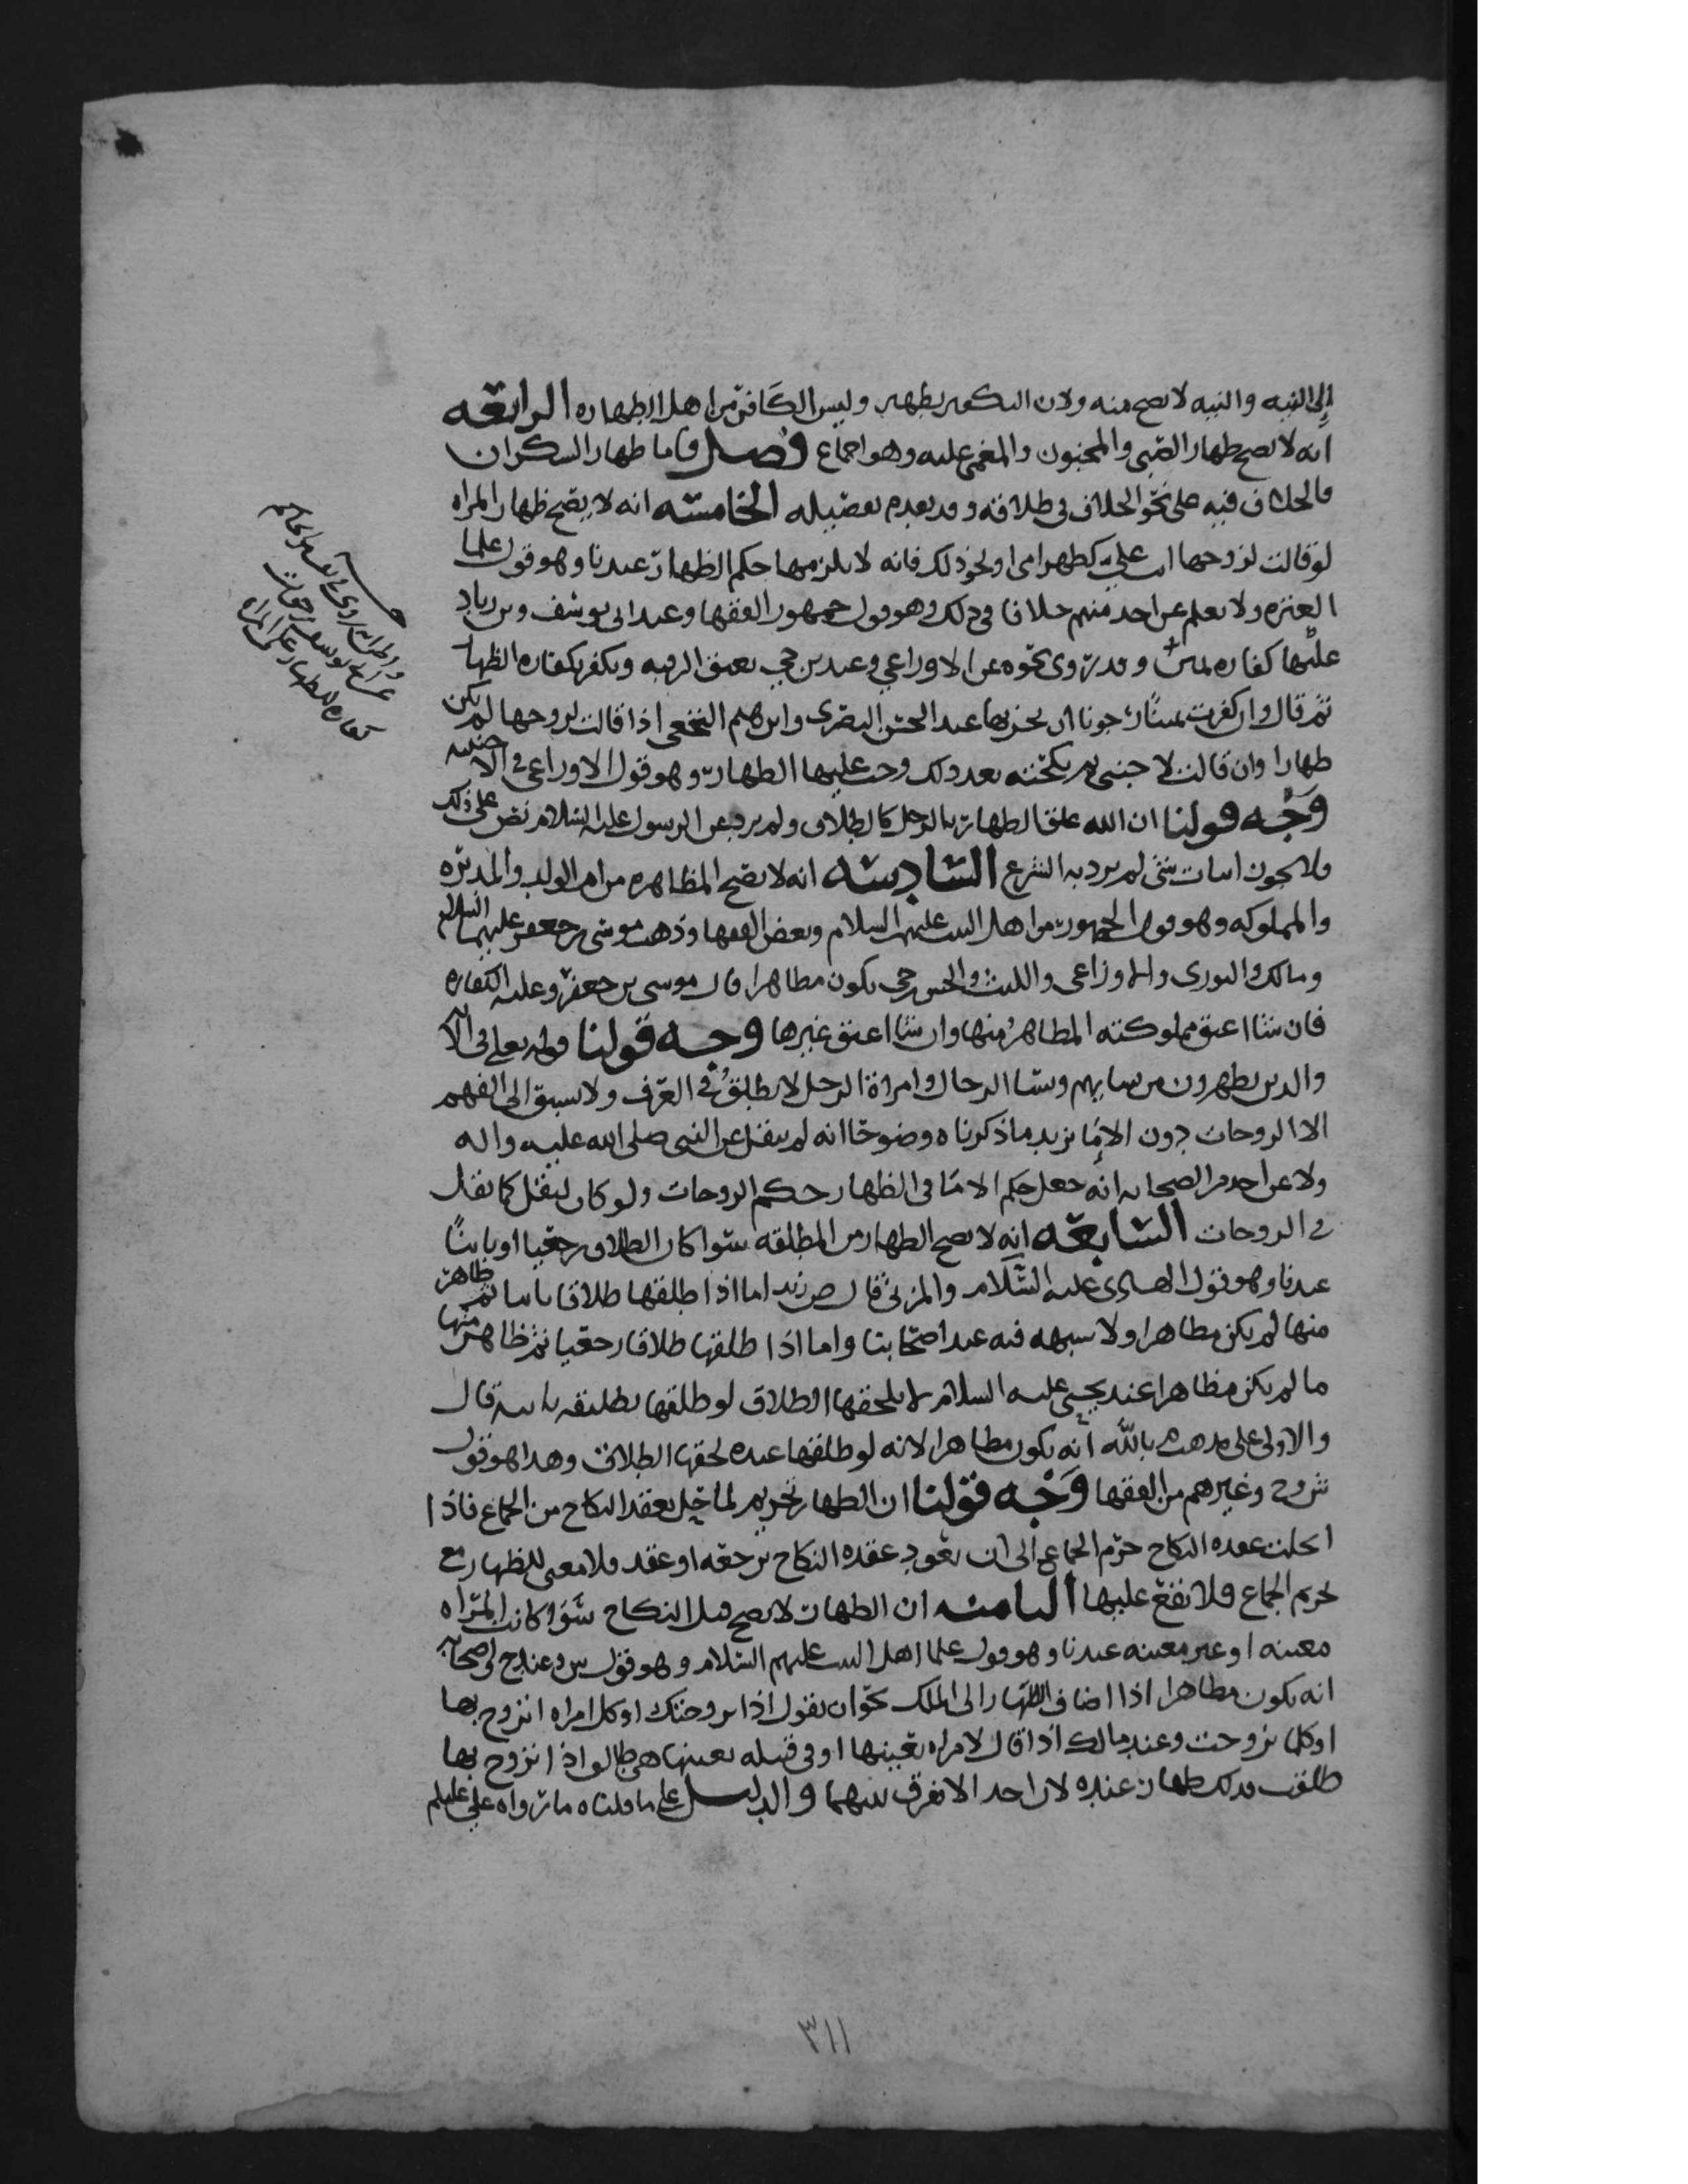 إلى النيه والنيه لا تصح منه ولان التكفير تطهير وليس الكافر من اهل الطهاره الرابعه
انه لا يصح ظهار الصبي والمجنون والمغمى عليه وهو اجماع فصل فاما ظهار السكران
فالخلاف فيه على نحو الخلاف في طلاقه وقد تقدم تفصيله الخامسه انه لا يصح ظهار المراه
لو قالت لزوجها انت علي كظهر امي او نحو ذلك فانه لا يلزمها حكم الظهار عندنا وهو قول علما
العتره ولا نعلم عن احد منهم خلافا في ذلك وهو قول جمهور الفقها وعند ابي يوسف وبن زياد
عليها كفاره يمين وقد روي نحوه عن الاوزاعي وعند بن حي تعتق الرقبه وتكفر بكفاره الظهار
ثم قال وان كفرت يمينا رجونا ان يجزيها عند الحسن البصري وابرهيم النخعي اذا قالت لزوجها لم يكن
ظهارا وان قالت لاجنبي ثم نكحته بعد ذلك وجب عليها الظهار وهو قول الاوزاعي في الاجنبيه
وجه قولنا ان الله علق الظهار بالرجل كالطلاق ولم يرد عن الرسول عليه السلام نص على ذلك
ولا يجوز اثبات شي لم يرد به الشرع السادسه انه لا تصح المظاهره من ام الولد والمدبره
والمملوكه وهو قول الجمهور من اهل البيت عليهم السلام وبعض الفقها وذهب موسى بن جعفر عليهما السلام
ومالك والثوري والاوزاعي والليث والحسن بن حي يكون مظاهرا قال موسى بن جعفر وعليه الكفاره
فان شا اعتق مملوكته المظاهر منها وان شا اعتق غيرها وجه قولنا قوله تعالى في الايه
والذين يظهرون من نسايهم ونسا الرجال وامراة الرجل لا يطلق في العرف ولا يسبق الى الفهم
الا الزوجات دون الاما يزيد ما ذكرناه وضوحا انه لم ينقل عن النبي صلى الله عليه واله
ولا عن احد من الصحابه انه جعل حكم الاما في الظهار حكم الزوجات ولو كان لنقل كما نقل
في الزوجات السابعه انه لا يصح الظهار من المطلقه سوا كان الطلاق رجعيا او باينا
عندنا وهو قول الهادي عليه السلام والمزني قال ص زيد اما اذا طلقها طلاقا باينا ثم ظاهر
منها لم يكن مظاهرا ولا شبهه فيه عند اصحابنا واما اذا طلقها طلاقا رجعيا ثم ظاهر منها
ما لم يكن مظاهرا عند يحيى عليه السلام لا يلحقها الطلاق لو طلقها تطليقه ثانيه قال
والاولى على مذهب م بالله انه يكون مظاهرا لانه لو طلقها عنده لحقها الطلاق وهذا هو قول
ش و ح وغيرهم من الفقها وجه قولنا ان الظهار تحريم لما حل بعقد النكاح من الجماع فاذا
انحلت عقده النكاح حرم الجماع الى ان تعود عقده النكاح برجعه او عقد فلا معنى للظهار مع
تحريم الجماع فلا يقع عليها الثامنه ان الظهار لا يصح قبل النكاح سوا كانت المراه
معينه او غير معينه عندنا وهو قول علما اهل البيت عليهم السلام وهو قول ش وعند ح واصحابه
انه يكون مظاهرا اذا اضاف الظهار الى الملك نحو ان يقول اذا تزوجتك او كل امراه اتزوج بها
او كلما تزوجت وعند مالك اذا قال لامراه بعينها او في قبيله بعينها هي طالق اذا تزوج بها
طلقت فذلك ظهار عنده لان احدا لا يفرق بينهما والدليل على ما قلناه ما رواه علي عليلم